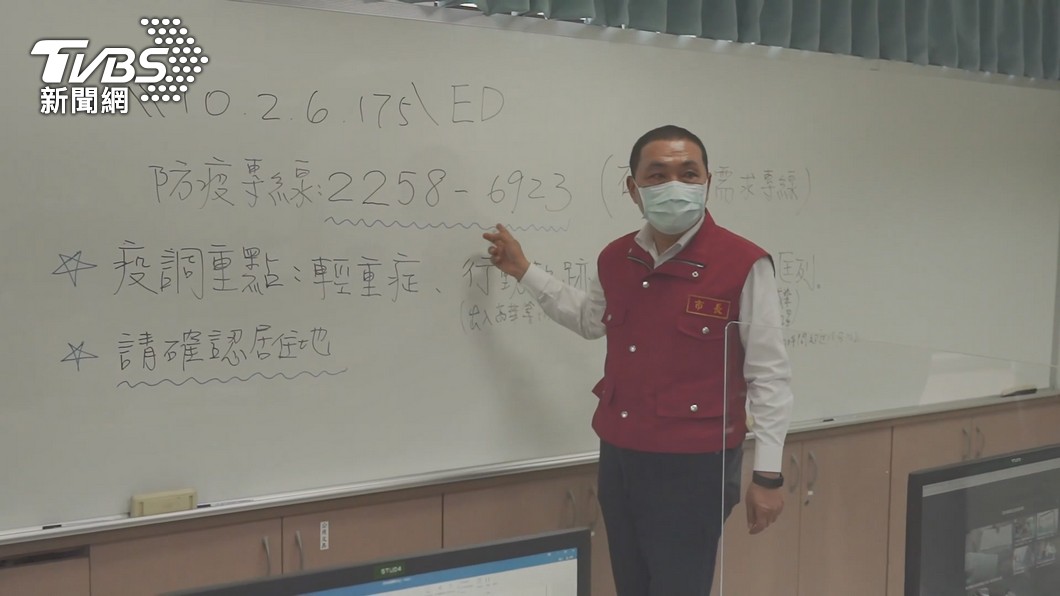 TVBS
新聞網
\\10.2.6.175\ED
防疫專線:2258-6923 (需求專線)
☆ 疫調重點:輕重症、行動軌跡 匡列.
☆ 請確認居住地
市長